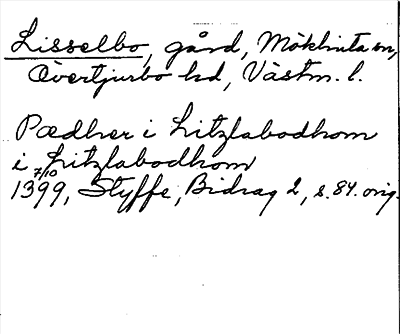 Lisselbo, gård, Möklinta sn,
Övertjurbo hd, Västm. l.
Pædher i Litzlabodhom
i Litzlabodhom
7/10
1399, Styffe, Bidrag 2, s. 84. orig.